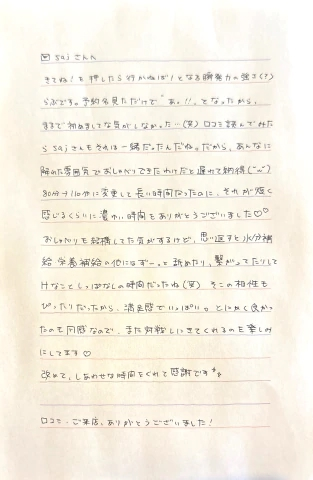 ✉ saj さんへ
きてね！を押したら行かねば！となる瞬発力の強さ(？)
らぶです。予約名見ただけで“あっ!!”となったから、
まるで初めましてな気がしなかった…(笑) 口コミ読んでみた
ら sajさんもそれは一緒だったんだね。だから、あんなに
解けた雰囲気でおしゃべりできたわけだと遅れて納得(˘ω˘)
80分→110分に変更して長い時間だったのに、それが短く
感じるくらいに濃ゆい時間をありがとうございました♡♡
おしゃべりも結構してた気がするけど、思い返すと水分補
給 栄養補給の他にはずーっと舐めたり、繋がってたりして
Hなことしっぱなしの時間だったね(笑) そこの相性も
ぴったりだったから、満足感でいっぱいっ とにかく良かっ
たのも同感なので、また対戦しにきてくれるのを楽しみ
にしてます♡
改めて、しあわせな時間をくれて感謝です
口コミ・ご来店、ありがとうございました！